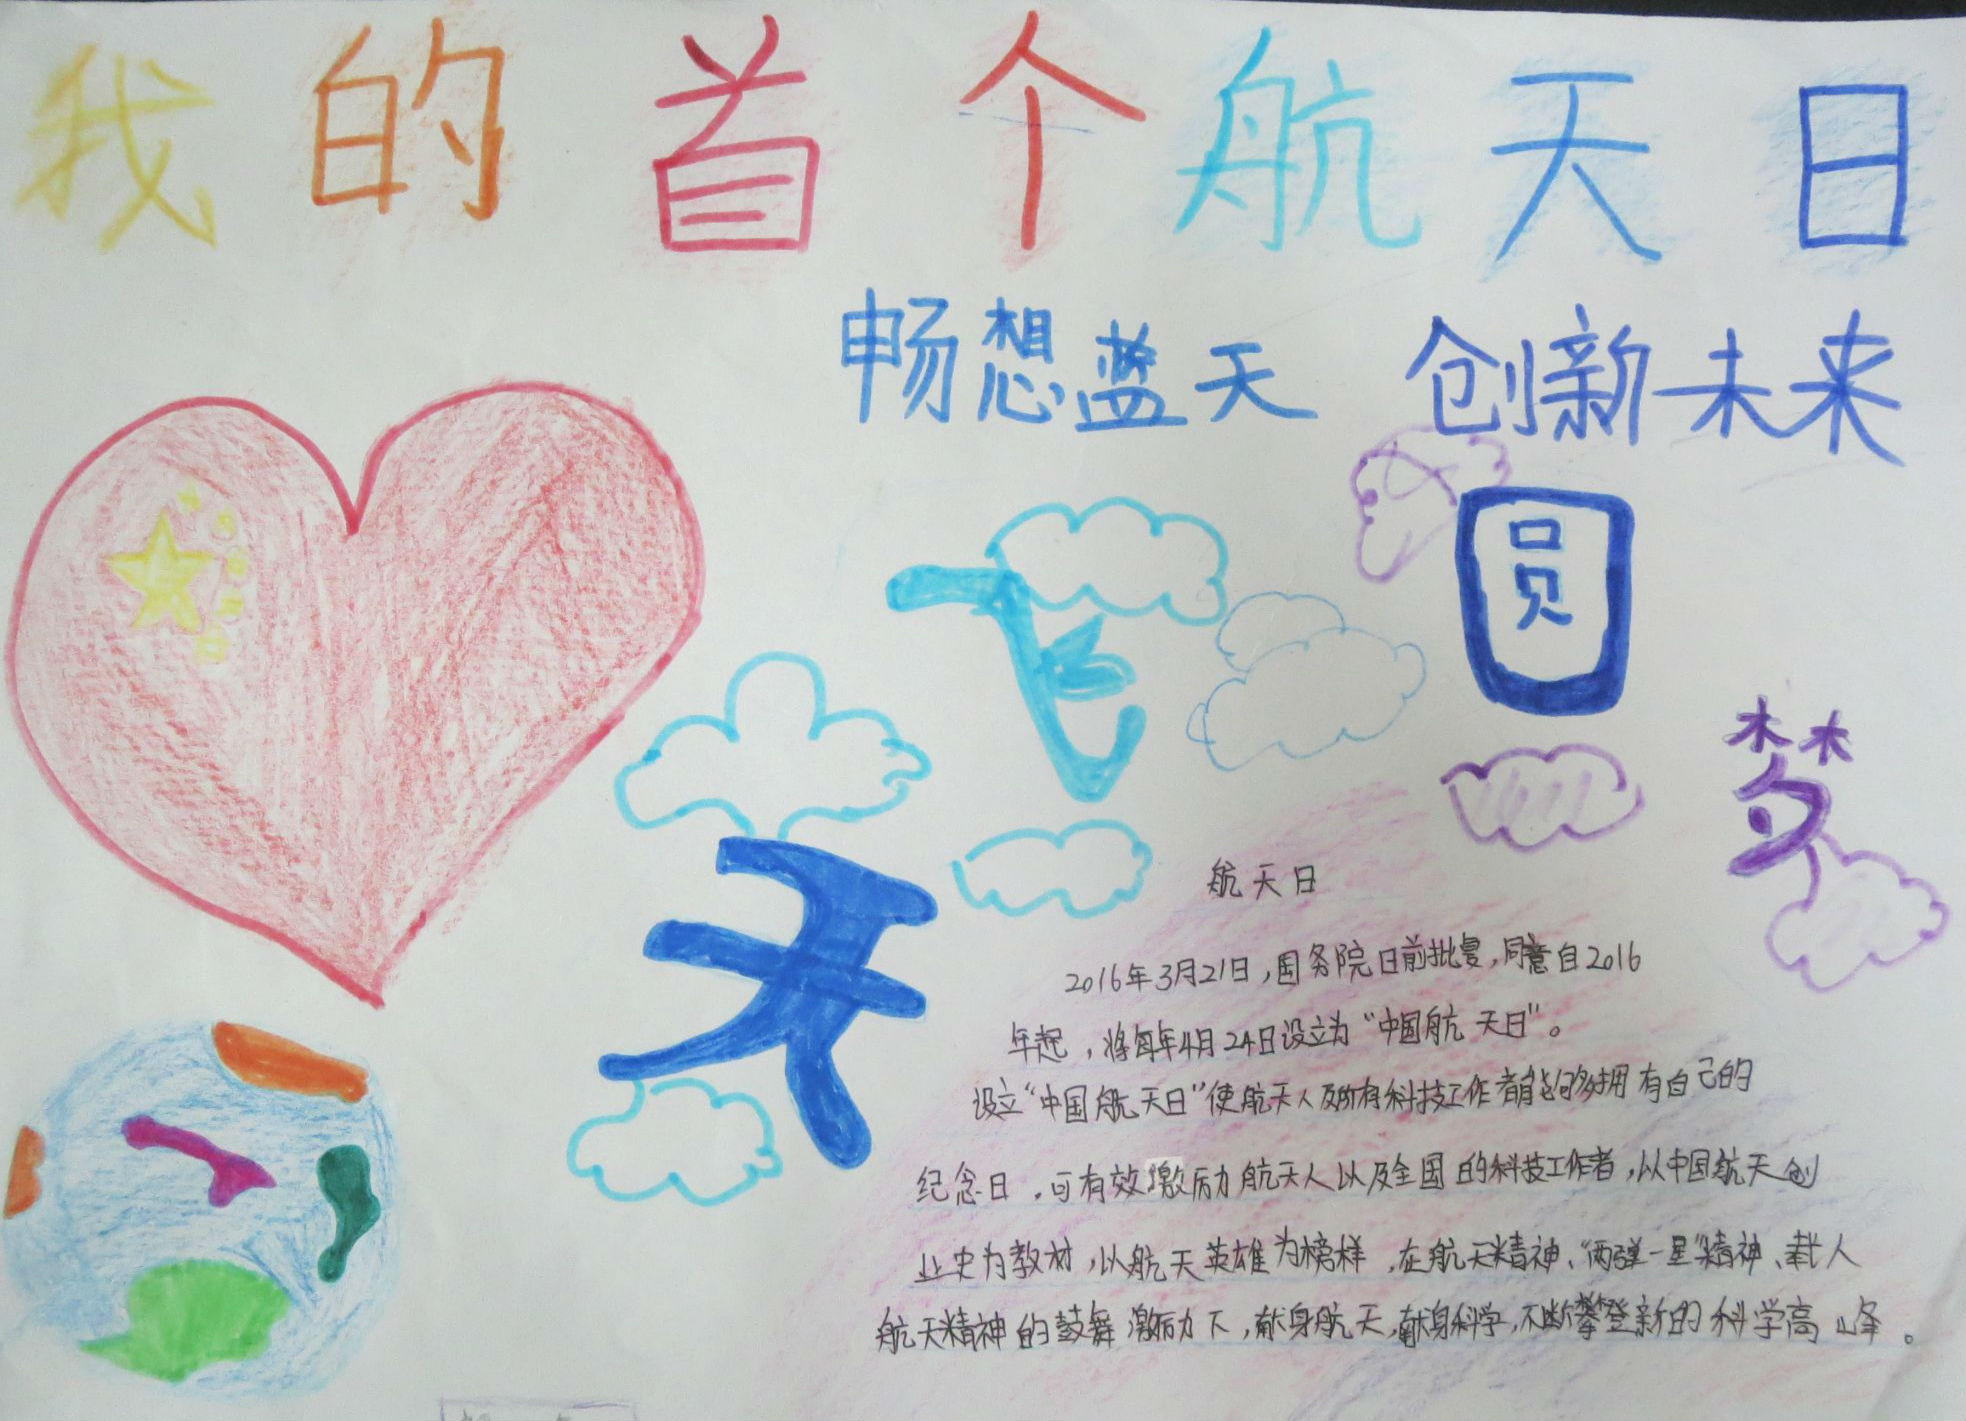 我的首个航天日
畅想蓝天 创新未来
飞天圆梦
航天日
2016年3月21日，国务院日前批复，同意自2016
年起，将每年4月24日设立为“中国航天日”。
设立“中国航天日”使航天人及所有科技工作者能够拥有自己的
纪念日，可有效激励航天人以及全国的科技工作者，以中国航天创
业史为教材，以航天英雄为榜样，在航天精神、“两弹一星”精神、载人
航天精神的鼓舞激励力下，献身航天，献身科学，不断攀登新的科学高峰。